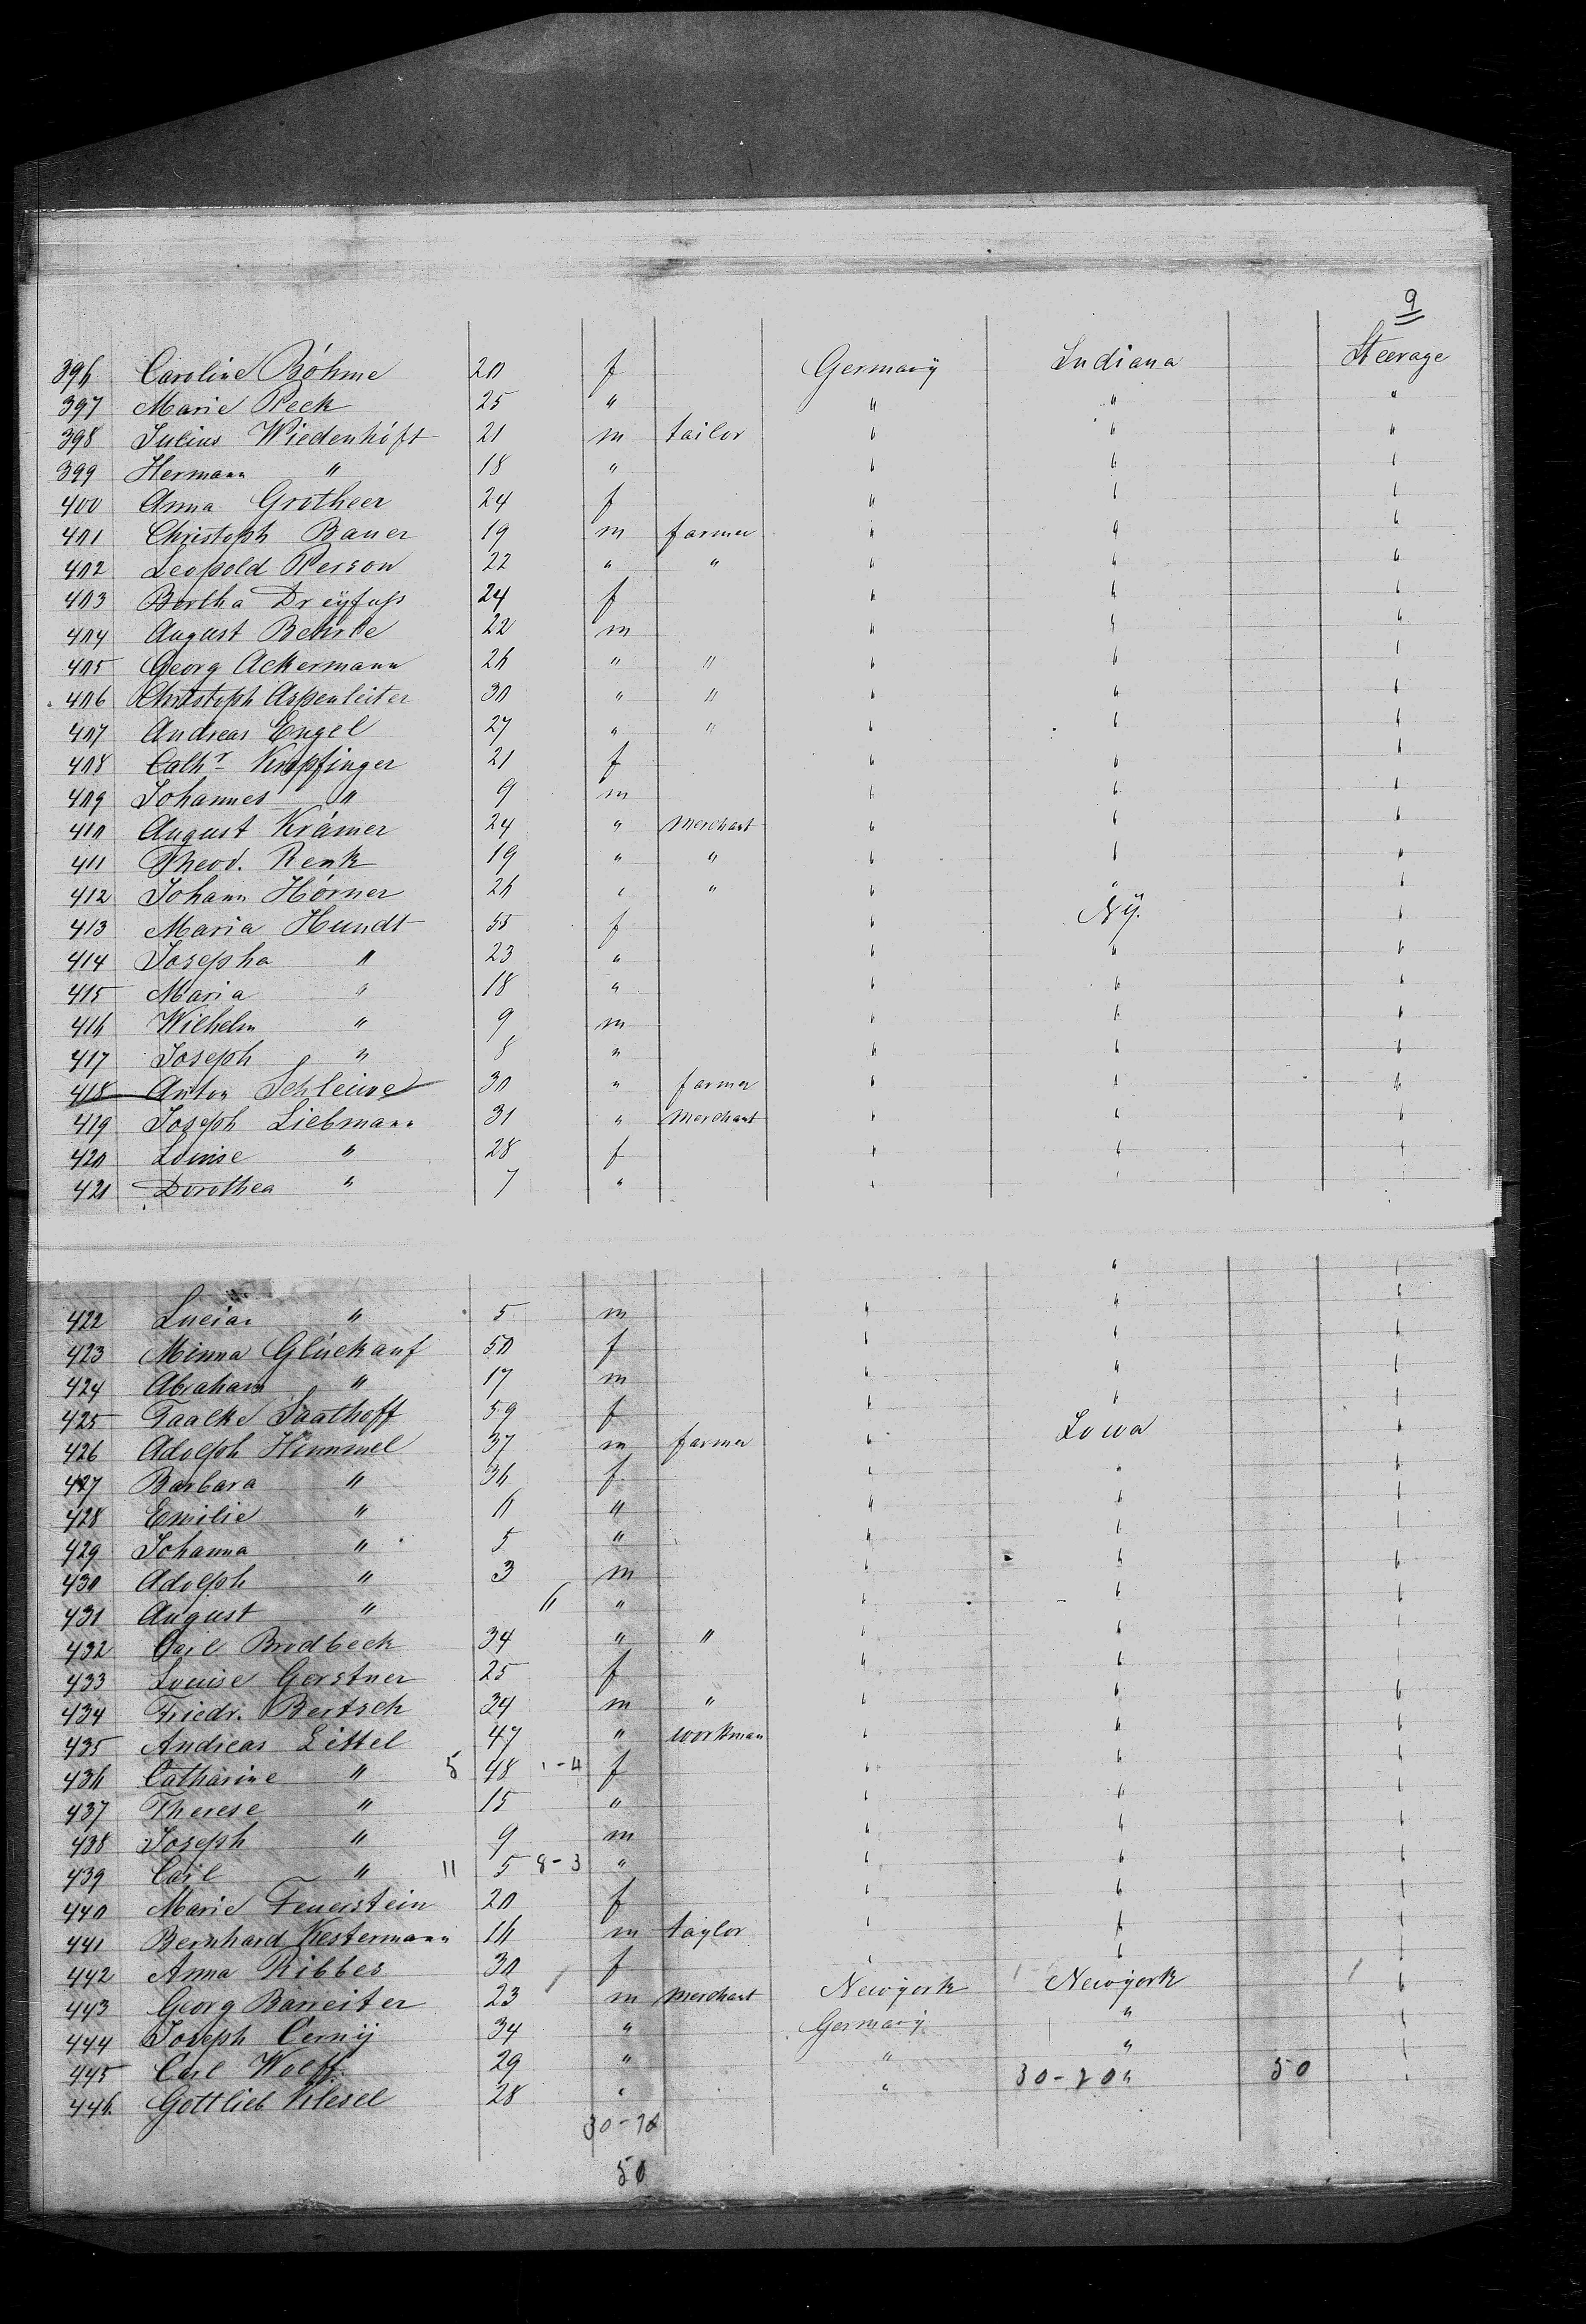 9
396 Caroline Böhme 20 f Germany Indiana Steerage
397 Marie Peck 25 " " " "
398 Julius Wiedenhöft 21 m tailor " " "
399 Hermann " 18 " " " "
400 Anna Grotheer 24 f " " "
401 Christoph Bauer 19 m farmer " " "
402 Leopold Person 22 " " " " "
403 Bertha Dreÿfuss 24 f " " "
404 August 22 m " " "
405 Georg Ackermann 26 " " " " "
406 Christoph Aspenleiter 30 " " " " "
407 Andreas Engel 27 " " " " "
408 Cathr Knopfinger 21 f " " "
409 Johannes " 9 m " " "
410 August Krämer 24 " merchant " " "
411 Theod. Renk 19 " " " " "
412 Johann Hörner 26 " " " " "
413 Maria Hundt 55 f " NY. "
414 Josepha " 23 " " " "
415 Maria " 18 " " " "
416 Wilhelm " 9 m " " "
417 Joseph " 8 " " " "
418 Anton 30 " farmer " " "
419 Joseph Liebmann 31 " merchant " " "
420 Louise " 28 f " " "
421 Dorothea " 7 " " " "
422 Lucian " 5 m " " "
423 Minna Glückauf 50 f " " "
424 Abraham " 17 m " " "
425 Taalke Saathoff 59 f " " "
426 Adolph Himmel 37 m farmer " Iowa "
427 Barbara " 36 f " " "
428 Emilie " 6 " " " "
429 Johanna " 5 " " " "
430 Adolph " 3 m " " "
431 August " 6 " " " "
432 Carl Brodbeck 34 " " " " "
433 Louise Gerstner 25 f " " "
434 Friedr. Bertsch 34 m " " " "
435 Andreas Littel 47 " workman " " "
436 Catharine " 5 48 1-4 f " " "
437 Therese " 15 " " " "
438 Joseph " 9 m " " "
439 Carl " 11 5 8-3 " " " "
440 Marie Feuerstein 20 f " " "
441 Bernhard Kestermann 16 m taylor " " "
442 Anna Ribbes 30 f " " "
443 Georg Barreiter 23 m merchant Newyork Newyork "
444 Joseph Cerny 34 " Germany " "
445 Carl Wolff 29 " " " "
446 Gottlieb Klesel 28 " " 30-20 " 50 "
50